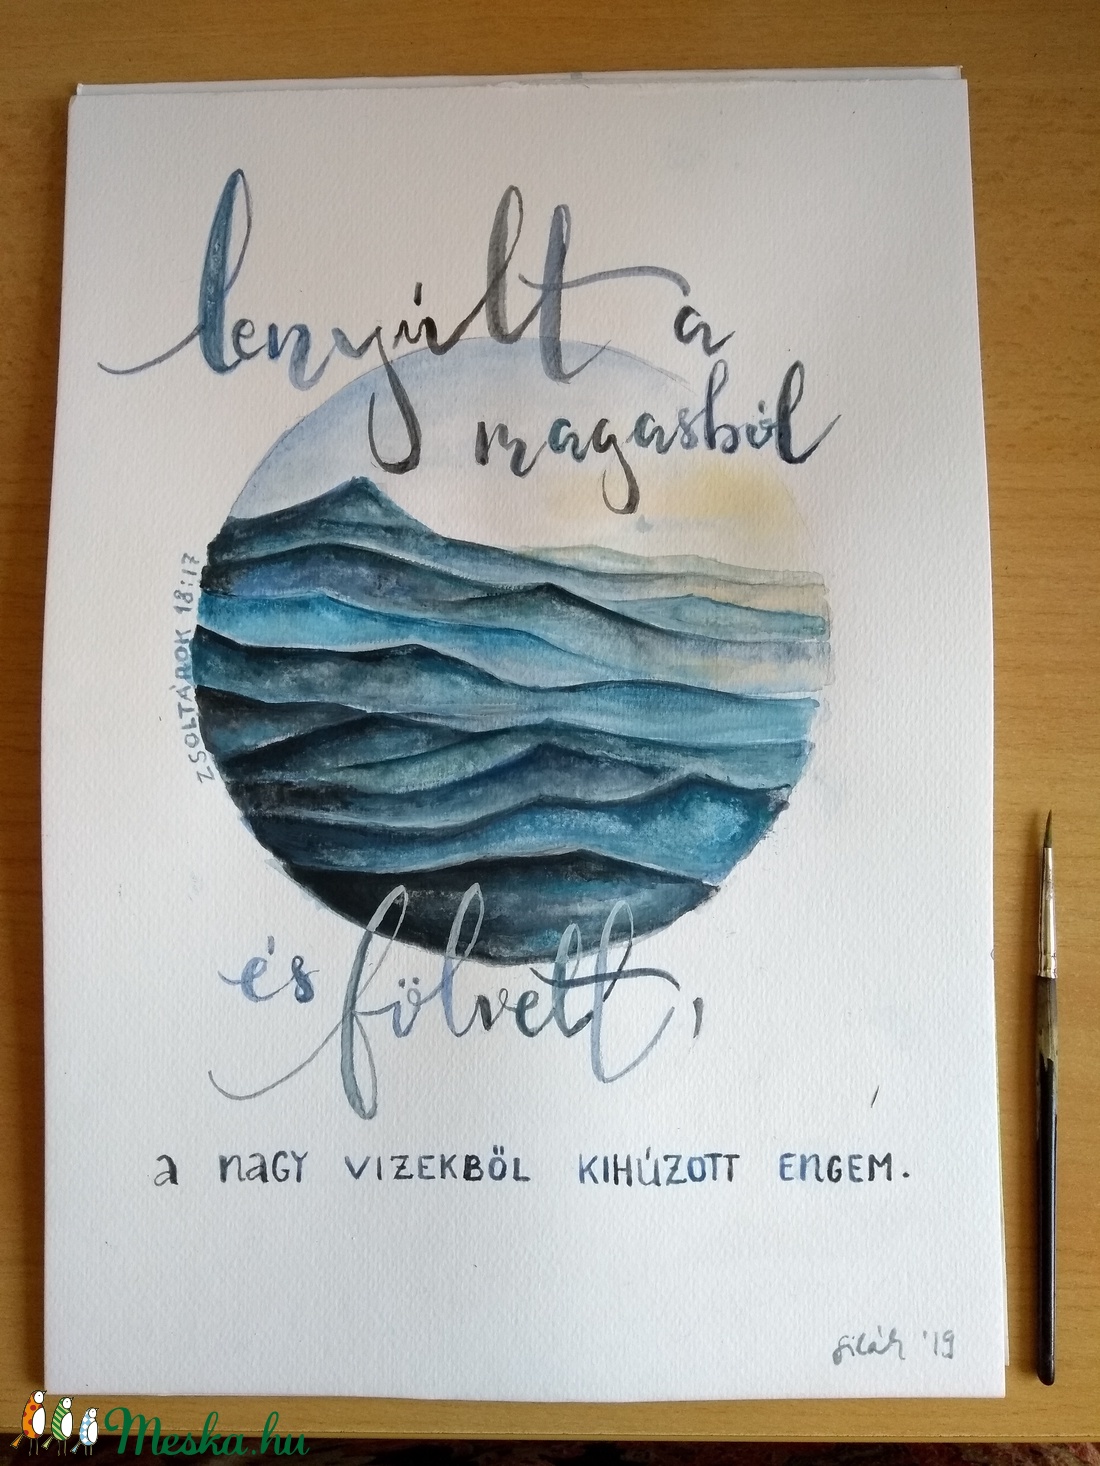 lenyúlt a
magasból
ZSOLTÁROK 18:17
és fölvett,
a nagy vizekből kihúzott engem.
'19
Meska.hu